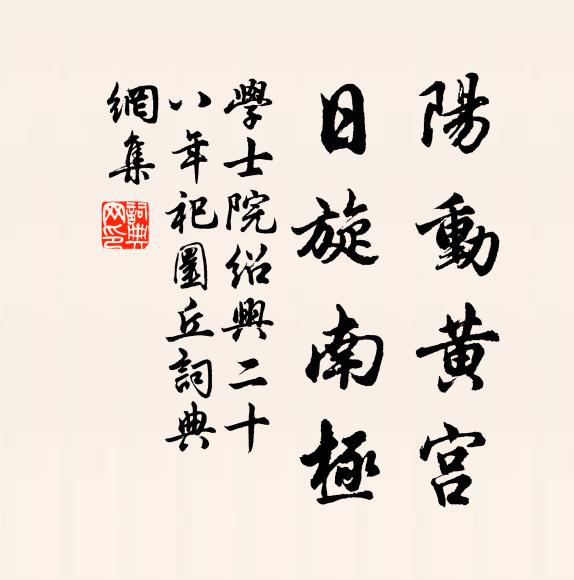 陽動黄宮
日旋南極
學士院紹興二十
八年祀圜丘詞典
網集
詞典
网印